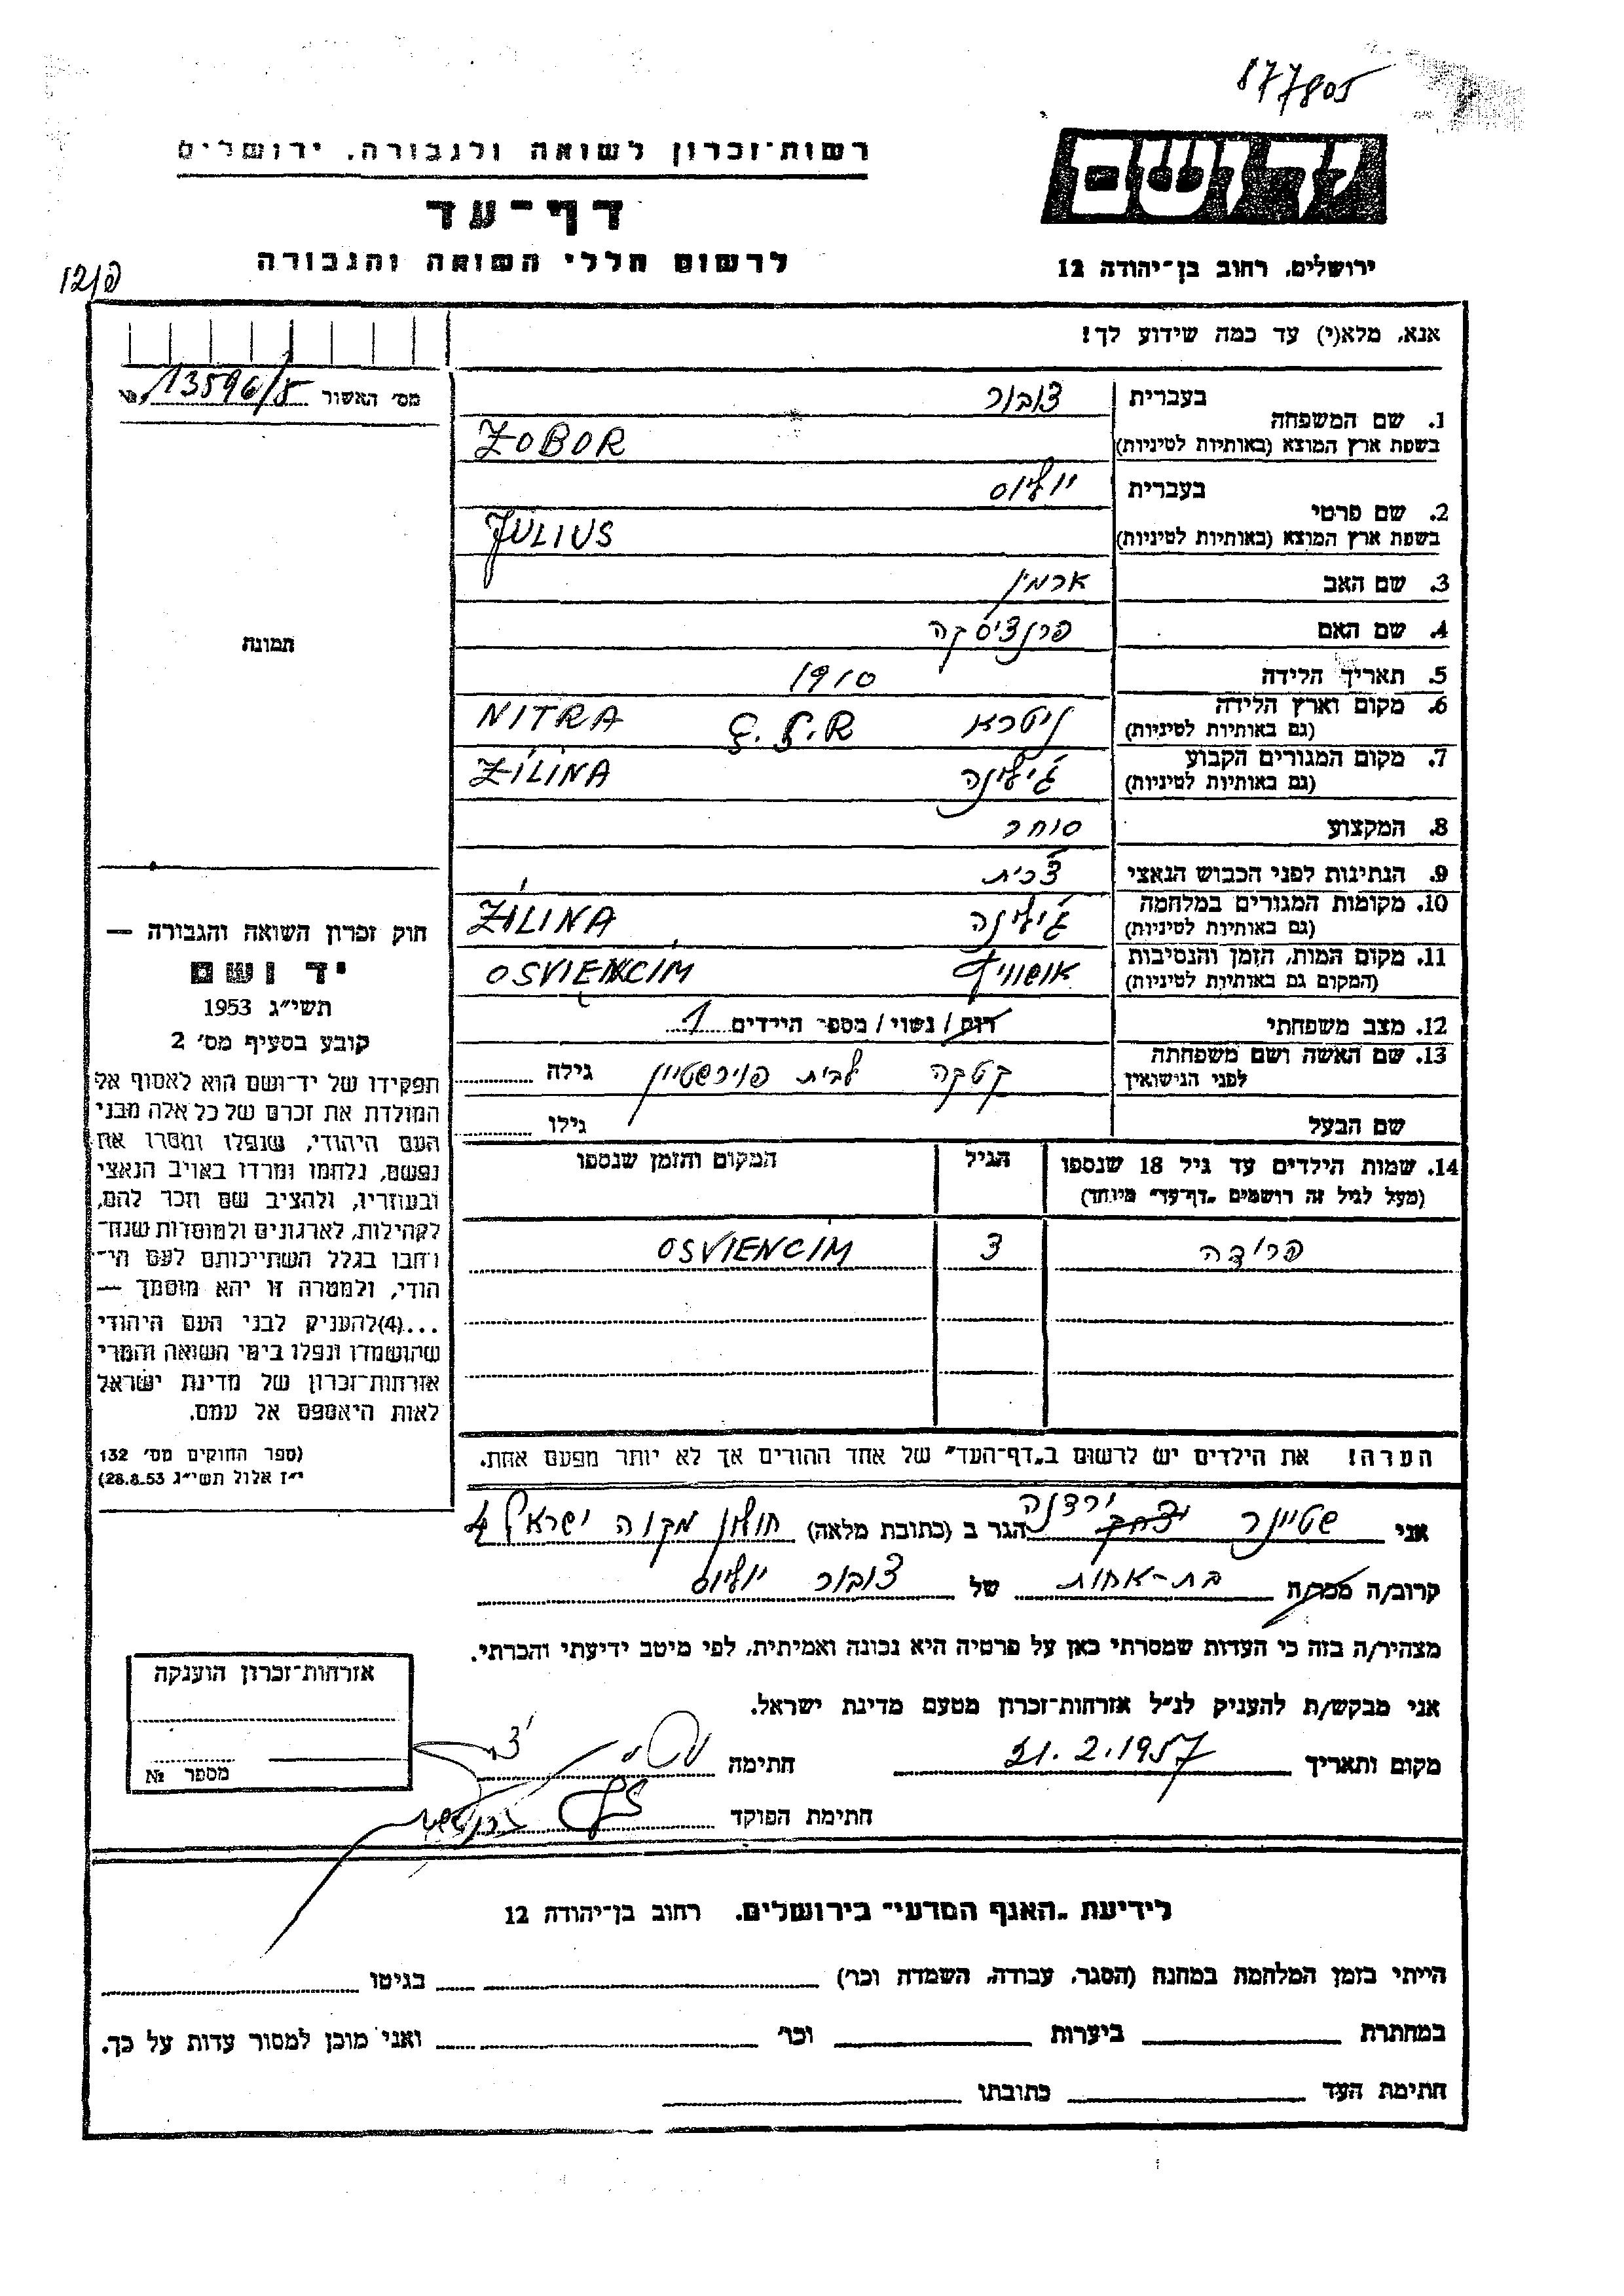 877805
רשות־זכרון לשואה ולגבורה, ירושלים
דף־עד
לרשום חללי השואה והגבורה
ירושלים, רחוב בן־יהודה 12
אנא, מלא(י) עד כמה שידוע לך!
מס׳ האשור 13596/ № 
1. שם המשפחה בעברית צובור
בשפת ארץ המוצא (באותיות לטיניות) ZOBOR
2. שם פרטי בעברית יוליוס
בשפת ארץ המוצא (באותיות לטיניות) JULIUS
3. שם האב ארמין
4. שם האם פרנציסקה
5. תאריך הלידה 1910
6. מקום וארץ הלידה ניטרא NITRA
(גם באותיות לטיניות)
7. מקום המגורים הקבוע ג׳ילינה ŽILINA
(גם באותיות לטיניות)
8. המקצוע סוחר
9. הנתינות לפני הכבוש הנאצי צ׳כית
10. מקומות המגורים במלחמה ג׳ילינה ŽILINA
(גם באותיות לטיניות)
11. מקום המות, הזמן והנסיבות אושוויץ OSVIENCIM
(המקום גם באותיות לטיניות)
12. מצב משפחתי רוק / נשוי / מספר הילדים 1
13. שם האשה ושם משפחתה קטקה לבית פוירשטיין גילה
לפני הנישואין
שם הבעל גילו
14. שמות הילדים עד גיל 18 שנספו הגיל המקום והזמן שנספו
(מעל לגיל זה רושמים „דף־עד״ מיוחד)
פרידה 3 OSVIENCIM
הערה! את הילדים יש לרשום ב„דף־העד״ של אחד ההורים אך לא יותר מפעם אחת.
תמונה
חוק זכרון השואה והגבורה —
יד ושם
תשי״ג 1953
קובע בסעיף מס׳ 2
תפקידו של יד־ושם הוא לאסוף אל
המולדת את זכרם של כל אלה מבני
העם היהודי, שנפלו ומסרו את
נפשם, נלחמו ומרדו באויב הנאצי
ובעוזריו, ולהציב שם וזכר להם,
לקהילות, לארגונים ולמוסדות שנח־
רחבו בגלל השתייכותם לעם הי־
הודי, ולמטרה זו יהא מוסמך —
...(4)להעניק לבני העם היהודי
שהושמדו ונפלו בימי השואה והמרי
אזרחות־זכרון של מדינת ישראל
לאות היאספם אל עמם.
(ספר החוקים מס׳ 132
י״ז אלול תשי״ג 28.8.53)
אני שטיינר ירדנה הגר ב (כתובת מלאה) חולון מקוה ישראל 4
קרוב/ה מכר/ה בת-אחות של צובור יוליוס
מצהיר/ה בזה כי העדות שמסרתי כאן על פרטיה היא נכונה ואמיתית, לפי מיטב ידיעתי והכרתי.
אני מבקש/ת להעניק לנ״ל אזרחות־זכרון מטעם מדינת ישראל.
מקום ותאריך 21.2.1957 חתימה
חתימת הפוקד
אזרחות־זכרון הוענקה
מספר №
לידיעת „האגף המדעי״ בירושלים. רחוב בן־יהודה 12
הייתי בזמן המלחמה במחנה (הסגר, עבודה, השמדה וכו׳) בגיטו
במחתרת ביערות וכו׳ ואני מוכן למסור עדות על כך.
חתימת העד כתובתו